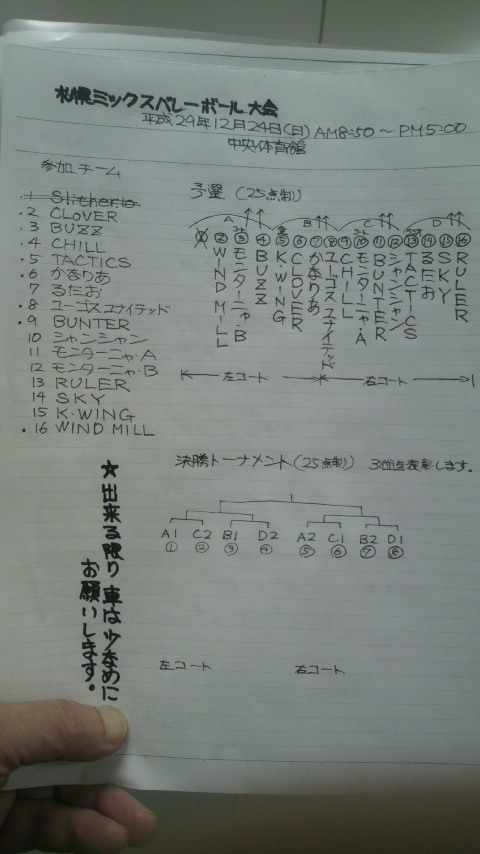 札幌ミックスバレーボール大会
平成29年12月24日(日) AM8:50 ~ PM5:00
中央体育館
参加チーム
1 Slither.io
・2 CLOVER
・3 BUZZ
・4 CHILL
・5 TACTICS
・6 かなりあ
7 るたお
・8 ユーゴスユナイテッド
・9 BUNTER
10 シャンシャン
11 モンターニャ・A
12 モンターニャ・B
13 RULER
14 SKY
15 K・WING
・16 WIND MILL
予選 (25点制)
A B C D
① ② ③ ④ ⑤ ⑥ ⑦ ⑧ ⑨ ⑩ ⑪ ⑫ ⑬ ⑭ ⑮ ⑯
WIND MILL
モンターニャ・B
BUZZ
K・WING
CLOVER
かなりあ
ユーゴスユナイテッド
CHILL
モンターニャ・A
BUNTER
シャンシャン
TACTICS
るたお
SKY
RULER
左コート 右コート
決勝トーナメント(25点制) 3位迄表彰します。
A1 C2 B1 D2 A2 C1 B2 D1
① ② ③ ④ ⑤ ⑥ ⑦ ⑧
左コート 右コート
★出来る限り車は少なめに
お願いします。